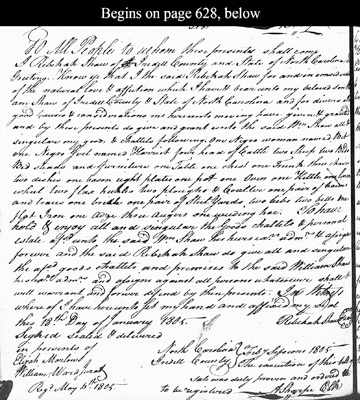 Begins on page 628, below
To All People to whom these presents shall come
I Rebekah Shaw of Iredell County and State of North Carolina
Greeting. Know ye that I the said Rebekah Shaw for and in consideration
of the natural love & affection which I have & bear unto my beloved son
am Shaw of Iredell County & State of North Carolina and for divers
good Causes & considerations me hereunto moving have given & granted
and by these presents do give and grant unto the said Wm Shaw all &
singular my good & Chattels following. One Negro woman named
one Negro Girl named Harriet four head of Cattle two Sheep two
steads and furniture one Table one Chest one Trunk three chairs
two dishes one dozen plates one pott one Oven one Kittle one
wheel two flax two ploughs & Coulter one pair of
and traces one one pair of Steel Yards, two tubs two bells
flat Iron one Adze three Augers one weeding hoe. To have
hold & enjoy all and Singular the Goods Chattels & personal
estate afsd unto the said Wm Shaw his heirs exr admrs & assigns
forever and the said Rebekah Shaw do give all and singular
the afsd goods Chattels and premises to the said William Shaw
his admrs and assigns against all persons whatsoever shall &
will warrant and forever defend by these presents. In Witness
whereof I have hereunto set my hand and affixed my Seal
this 18th Day of January 1805.
Rebekah Shaw
Signed Sealed & delivered
in presents of
Elijah
William
Regd May 4th 1805.
North Carolina
Iredell County
Feby Sessions 1805
The execution of this
Sale was duly proven and ordered
to be registered
A Sharpe Clk